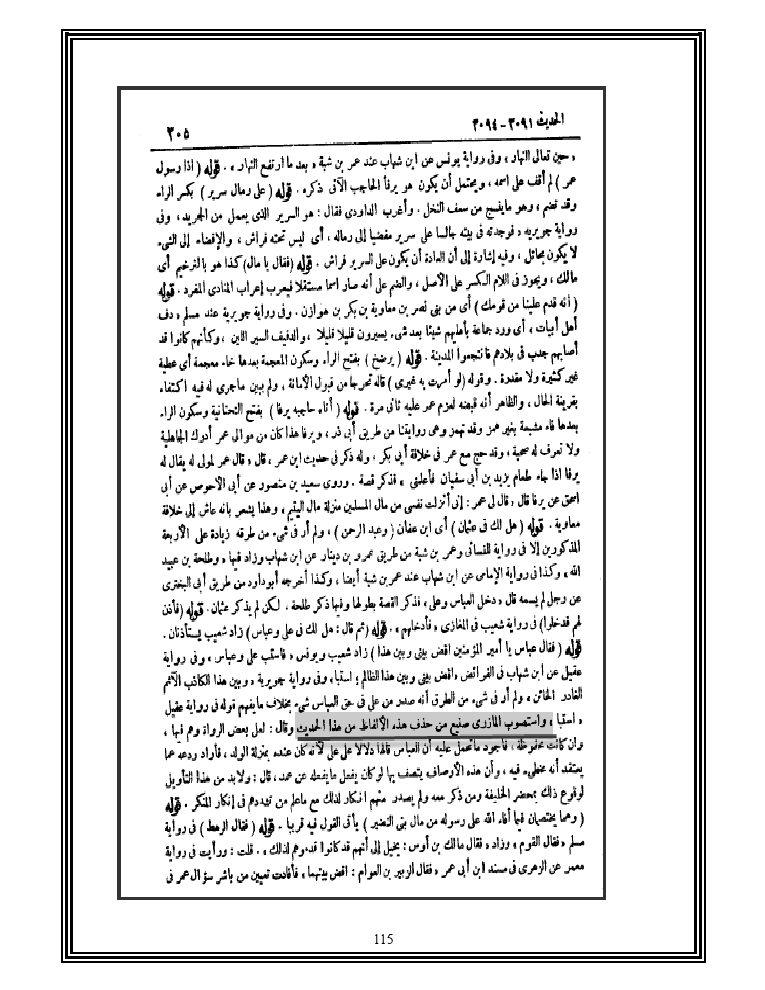 الحديث ٣٠٩١ - ٣٠٩٤
٣٠٥
« حين تعالى النهار ، وفى رواية يونس عن ابن شهاب عند عمر بن شبة « بعد ما ارتفع النهار » . قوله ( اذا رسول
عمر ) لم أقف على اسمه ، ويحتمل أن يكون هو يرفأ الحاجب الآتى ذكره . قوله ( على رمال سرير ) بكسر الراء
وقد تضم ، وهو ما ينسج من سعف النخل . وأغرب الداودى فقال : هو السرير الذى يعمل من الجريد ، وفى
رواية جويرية « فوجدته فى بيته جالسا على سرير مفضيا إلى رماله ، أى ليس تحته فراش ، والإفضاء إلى الشىء
لا يكون بحائل ، وفيه إشارة إلى أن العادة أن يكون على السرير فراش . قوله (فقال يا مال) كذا هو بالترخيم أى
مالك ، ويجوز فى اللام الكسر على الأصل ، والضم على أنه صار اسما مستقلا فيعرب إعراب المنادى المفرد . قوله
( انه قدم علينا من قومك ) أى من بنى نصر بن معاوية بن بكر بن هوازن . وفى رواية جويرية عند مسلم « دف
أهل أبيات ، أى ورد جماعة بأهلهم شيئا بعد شىء يسيرون قليلا قليلا ، والدفيف السير اللين ، وكأنهم كانوا قد
أصابهم جدب فى بلادهم فانتجعوا المدينة . قوله ( برضخ ) بفتح الراء وسكون المعجمة بعدها خاء معجمة أى عطية
غير كثيرة ولا مقدرة . وقوله (لو أمرت به غيرى ) قاله تحرجا من قبول الأمانة ، ولم يبين ماجرى له فيه اكتفاء
بقرينة الحال ، والظاهر أنه قبضه لعزم عمر عليه ثانى مرة . قوله ( أتاه حاجبه يرفا ) بفتح التحتانية وسكون الراء
بعدها فاء مشبعة بغير همز وقد تهمز وهى روايتنا من طريق أبى ذر ، ويرفا هذا كان من موالى عمر أدرك الجاهلية
ولا تعرف له صحبة ، وقد حج مع عمر فى خلافة أبى بكر ، وله ذكر فى حديث ابن عمر ، قال « قال عمر لمولى له يقال له
يرفا اذا جاء طعام يزيد بن أبى سفيان فأعلمنى » فذكر قصة . وروى سعيد بن منصور عن أبى الأحوص عن أبى
اسحق عن يرفا قال « قال لى عمر : إنى أنزلت نفسى من مال المسلمين منزلة مال اليتيم ، وهذا يشعر بأنه عاش إلى خلافة
معاوية . قوله ( هل لك فى عثمان ) أى ابن عفان ( وعبد الرحمن ) ، ولم أر فى شىء من طرقه زيادة على الأربعة
المذكورين إلا فى رواية للنسائى وعمر بن شبة من طريق عمرو بن دينار عن ابن شهاب وزاد فيها « وطلحة بن عبيد
الله » وكذا فى رواية الإمامى عن ابن شهاب عند عمر بن شبة أيضا ، وكذا أخرجه أبو داود من طريق أبى البخترى
عن رجل لم يسمه قال « دخل العباس وعلى ، فذكر القصة بطولها وفيها ذكر طلحة ، لكن لم يذكر عثمان . قوله (فأذن
لهم فدخلوا) فى رواية شعيب فى المغازى « فأدخلهم » . قوله (ثم قال : هل لك فى على وعباس ) زاد شعيب يستأذنان .
قوله ( فقال عباس يا أمير المؤمنين اقض بينى وبين هذا ) زاد شعيب ويونس « فاستب على وعباس ، وفى رواية
عقيل عن ابن شهاب فى الفرائض « اقض بينى وبين هذا الظالم ؛ استبا ، وفى رواية جويرية « وبين هذا الكاذب الآثم
الغادر الخائن ، ولم أر فى شىء من الطرق أنه صدر من على فى حق العباس شىء بخلاف ما يفهم قوله فى رواية عقيل
« استبا ، واستصوب المازرى صنيع من حذف هذه الألفاظ من هذا الحديث وقال : لعل بعض الرواة وهم فيها ،
وان كانت محفوظة ، فأجود ما تحمل عليه أن العباس قالها دلالا على على لأنه كان عنده بمنزلة الولد ، فأراد ردعه عما
يعتقد أنه مخطىء فيه ، وأن هذه الأوصاف يتصف بها لو كان يفعل ما يفعله عن عمد ، قال : ولا بد من هذا التأويل
لوقوع ذلك بمحضر الخليفة ومن ذكر معه ولم يصدر منهم انكار لذلك مع ما علم من تشددهم فى إنكار المنكر . قوله
( وهما يختصمان فيما أفاء الله على رسوله من مال بنى النضير ) يأتى القول فيه قريبا . قوله ( فقال الرهط ) فى رواية
مسلم « فقال القوم ، وزاد « فقال مالك بن أوس : يخيل إلى أنهم قد كانوا قدموهم لذلك » . قلت : ورأيت فى رواية
معمر عن الزهرى فى مسند ابن أبى عمر « فقال الزبير بن العوام : اقض بينهما ، فأفادت تعيين من باشر سؤال عمر فى
115